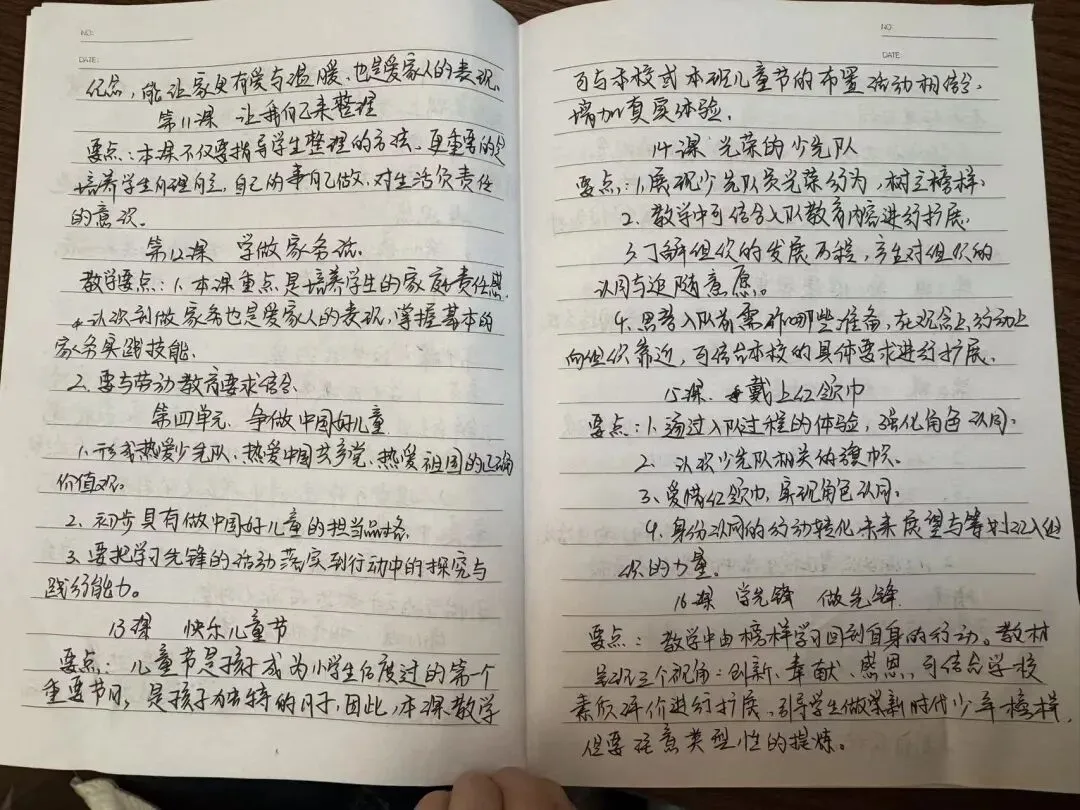 NO:
DATE:
优点，能让家更有爱与温暖，也是爱家人的表现。
第11课 让我自己来整理
要点：本课不仅要指导学生整理的方法，更重要的是
培养学生自理自立，自己的事自己做，对生活负责任
的意识。
第12课 学做家务活。
教学要点：1、本课重点是培养学生的家庭责任感，
认识到做家务也是爱家人的表现，掌握基本的
家务实践技能。
2、要与劳动教育要求结合
第四单元 争做中国好儿童
1、形成热爱少先队、热爱中国共产党、热爱祖国的正确
价值观。
2、初步具有做中国好儿童的担当品格
3、要把学习先锋的活动落实到行动中的探究与
践行能力。
13课 快乐儿童节
要点：儿童节是孩子成为小学生后度过的第一个
重要节日，是孩子们独特的日子，因此，本课教学
NO:
DATE:
可与本校或本班儿童节的布置活动相结合，
增加真实体验。
14课 光荣的少先队
要点：1、展现少先队员光荣行为，树立榜样。
2、教学中可结合入队教育内容进行扩展。
3、了解组织的发展历程，产生对组织的
认同与追随意愿。
4、思考入队前需作哪些准备，在观念上，行动上
向组织靠近，可结合本校的具体要求进行扩展。
15课 戴上红领巾
要点：1、通过入队过程的体验，强化角色认同。
2、认识少先队相关的旗帜。
3、爱惜红领巾，实现角色认同。
4、身份认同的行动转化，未来展望与筹划融入组
织的力量。
16课 学先锋 做先锋
要点：教学中由榜样学习回到自身的行动。教材
呈现三个视角：创新、奉献、感恩，可结合学校
素质评价进行扩展，引导学生做学新时代少年榜样，
但要注意类型性的提炼。